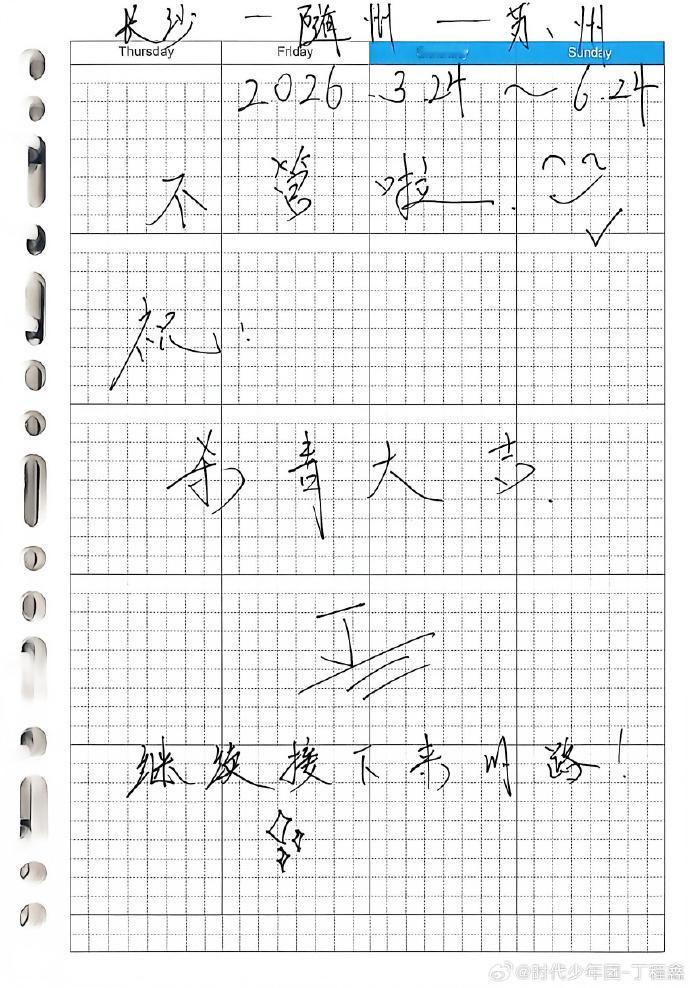 长沙 — 随州 — 苏州
Thursday Friday Sunday
2026.3.24 ~ 6.24
不管啦.
祝!
杀青大吉.
丁
继续接下来的路!
@时代少年团-丁程鑫